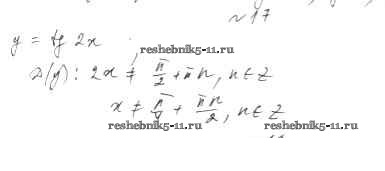 ~17
y = tg 2x ;
reshebnik5-11.ru
D(y): 2x ≠ π/2 + πn, n∈Z
x ≠ π/4 + πn/2, n∈Z
reshebnik5-11.ru reshebnik5-11.ru